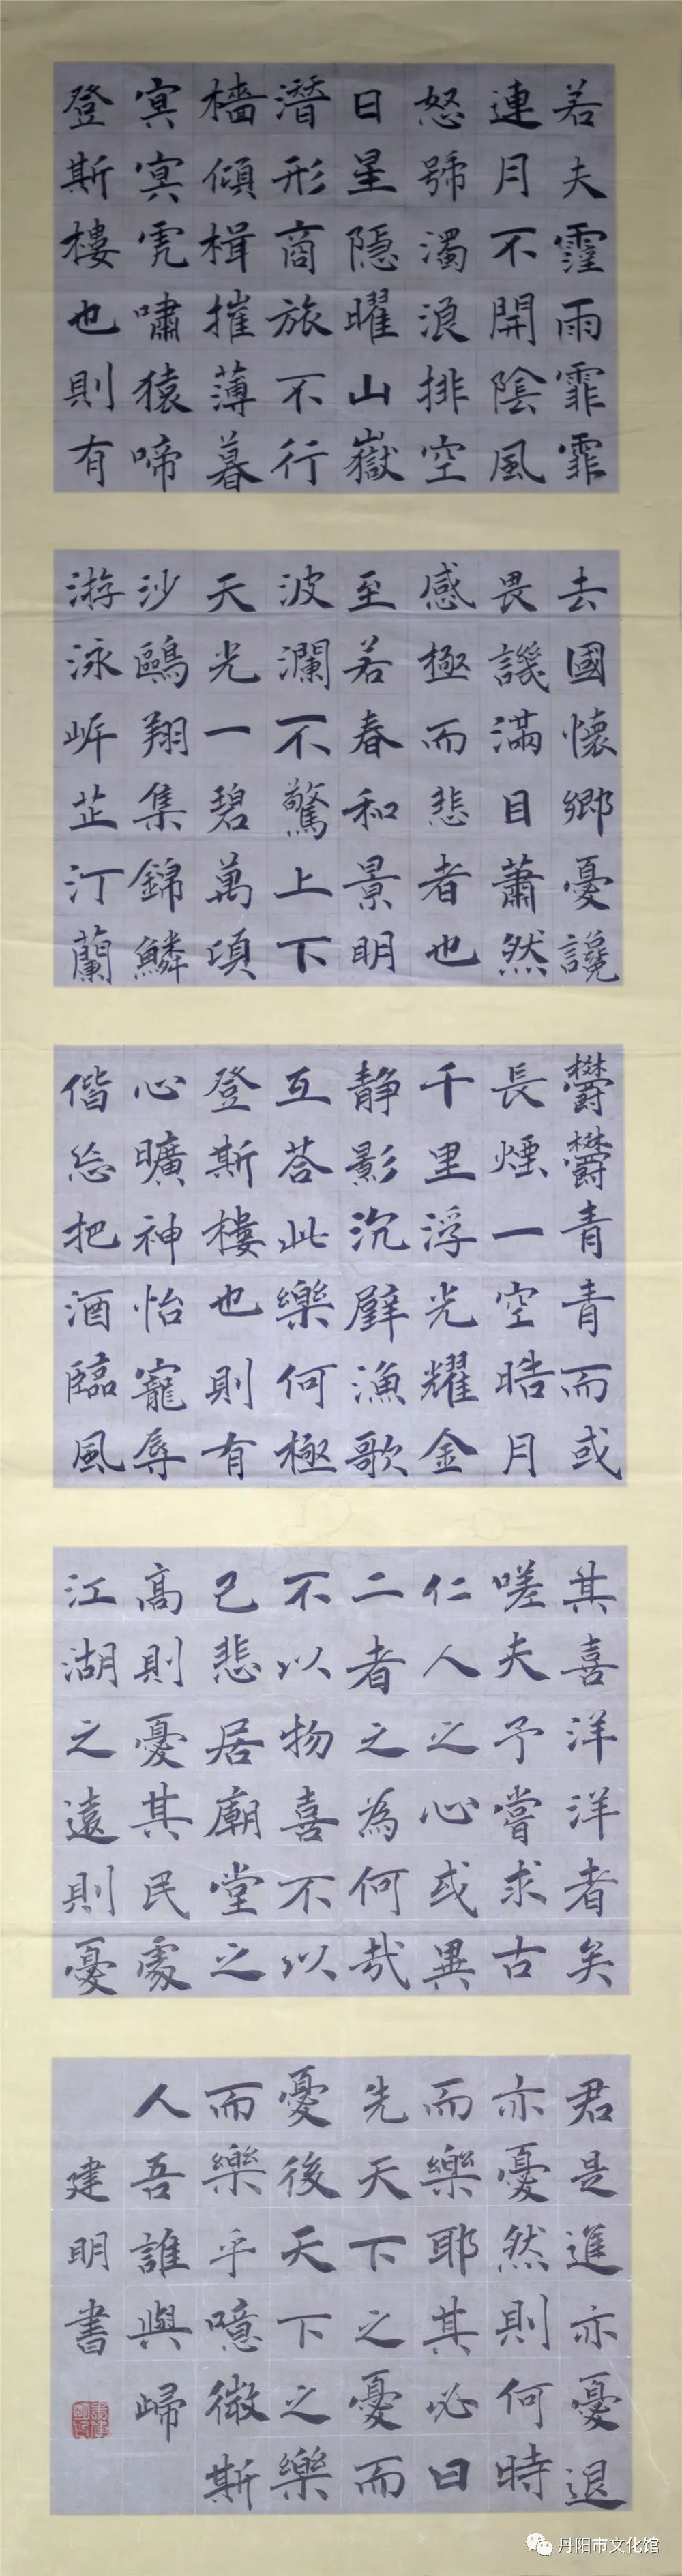 若夫霪雨霏霏
連月不開陰風
怒號濁浪排空
日星隱曜山嶽
潛形商旅不行
檣傾楫摧薄暮
冥冥虎嘯猿啼
登斯樓也則有
去國懷鄉憂讒
畏譏滿目蕭然
感極而悲者也
至若春和景明
波瀾不驚上下
天光一碧萬頃
沙鷗翔集錦鱗
游泳岸芷汀蘭
鬱鬱青青而或
長煙一空皓月
千里浮光耀金
靜影沉璧漁歌
互荅此樂何極
登斯樓也則有
心曠神怡寵辱
偕忘把酒臨風
其喜洋洋者矣
嗟夫予嘗求古
仁人之心或異
二者之為何哉
不以物喜不以
己悲居廟堂之
高則憂其民處
江湖之遠則憂
君是進亦憂退
亦憂然則何時
而樂耶其必曰
先天下之憂而
憂後天下之樂
而樂乎噫微斯
人吾誰與歸
建明書
丹阳市文化馆